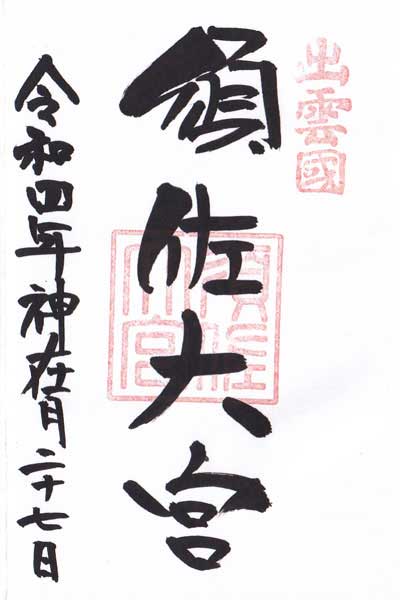 出雲國
須佐大宮
須佐大宮
令和四年神在月二十七日